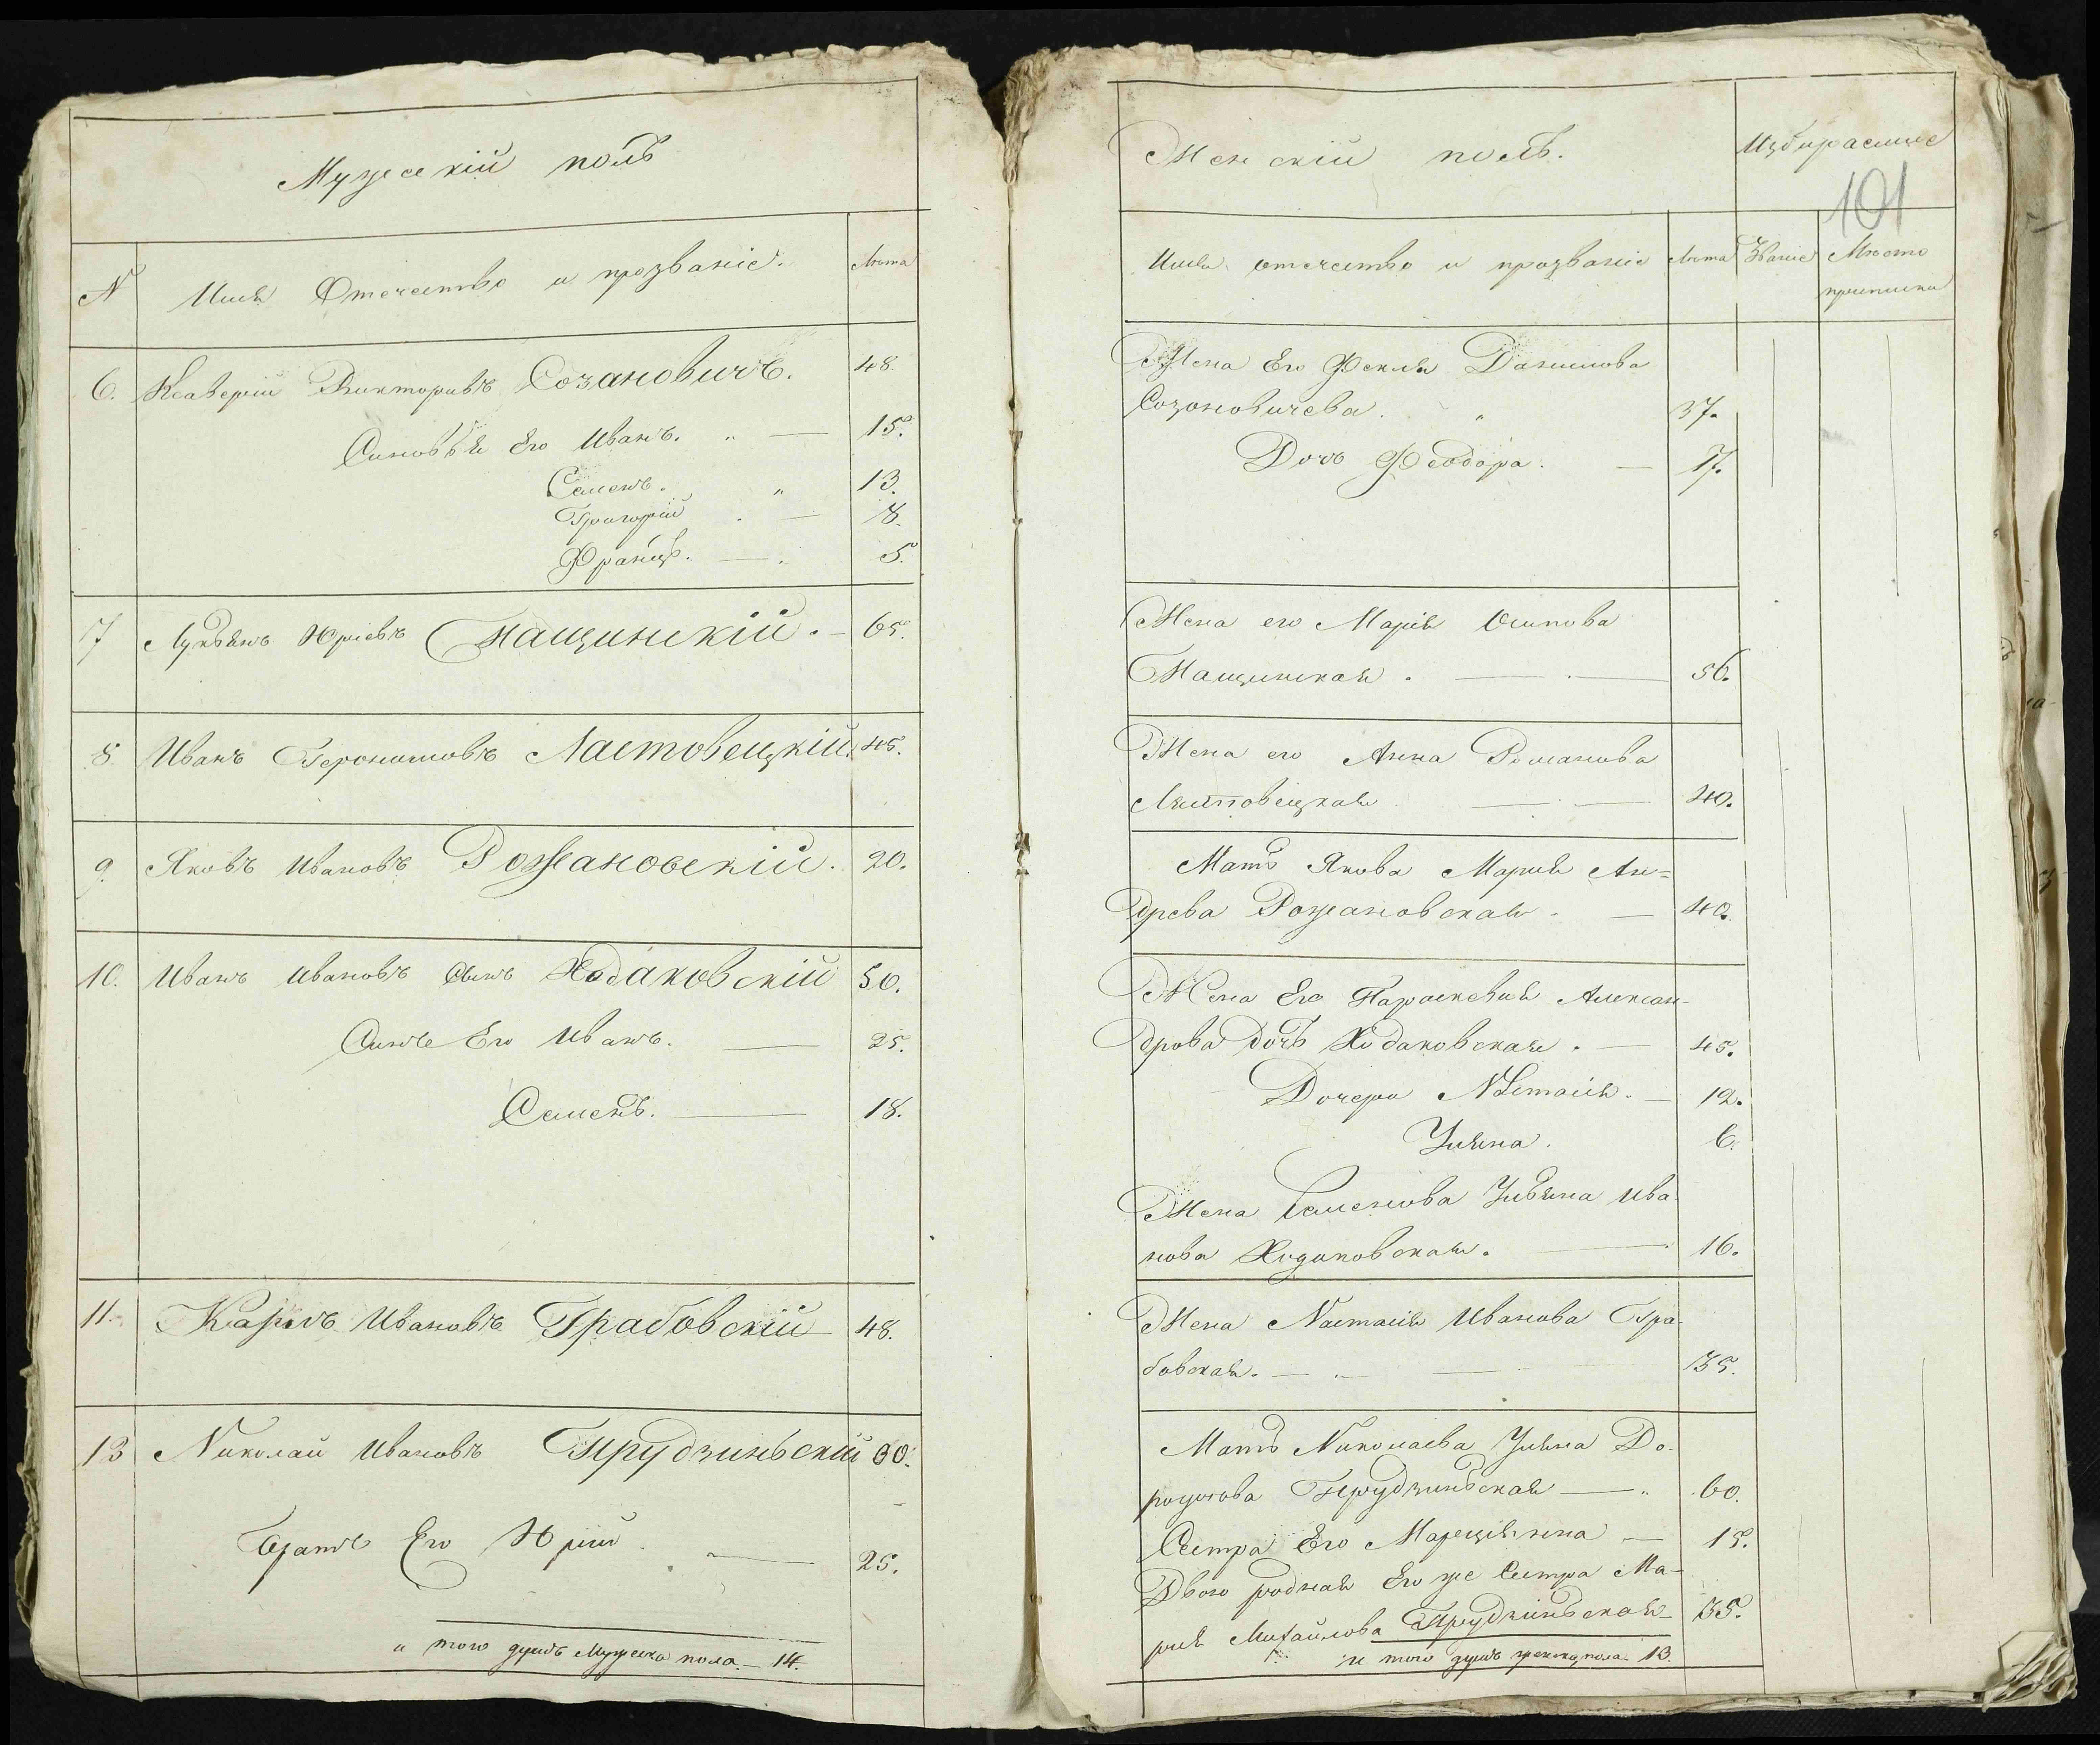 Мужескій полъ
N Имя Отечество и прозваніе. Лѣта
6. Ксаверій Викторовъ Созановичъ. 48.
Синовья Его Иванъ. 15.
Семенъ. 13.
Григорій 8.
Францъ. 5.
7 Лукьянъ Юріевъ Пащинскій. 65.
8. Иванъ Геронимовъ Ластовецкій. 45.
9. Яковъ Ивановъ Рожановскій. 20.
10. Иванъ Ивановъ Сынъ Ходаковскій 50.
Синъ Его Иванъ. 25.
Семенъ. 18.
11. Карлъ Ивановъ Грабовскій 48.
13 Николай Ивановъ Прудзиньскій 30.
Братъ Его Юрій 25.
и того душъ Мужеска пола 14.
Женскій полъ. Избираемые
101
Имя отечество и прозваніе Лѣта Званіе Место
приписки
Жена Его Фекла Данилова
Созоновичева. 37.
Дочь Феодора. 17.
Жена его Марія Осипова
Пащинская. 56.
Жена его Анна Романова
Ластовецкая 40.
Мать Якова Мария Ан=
древа Рожановская 40.
Жена Его Параскевия Алексан-
дрова дочь Ходаковская. 45.
Дочери Настасія. 12.
Уляна. 6.
Жена Семенова Ульяна Ива
нова Ходаковская. 16.
Жена Настасія Иванова Гра-
бовская. 35.
Мать Николаева Уляна До-
Прудзиньская 60.
Сестра Его Марціянна 15.
Двою родная Его же Сестра Ма-
рия Михайлова Прудзиньская 35.
и того душъ женска пола 13.